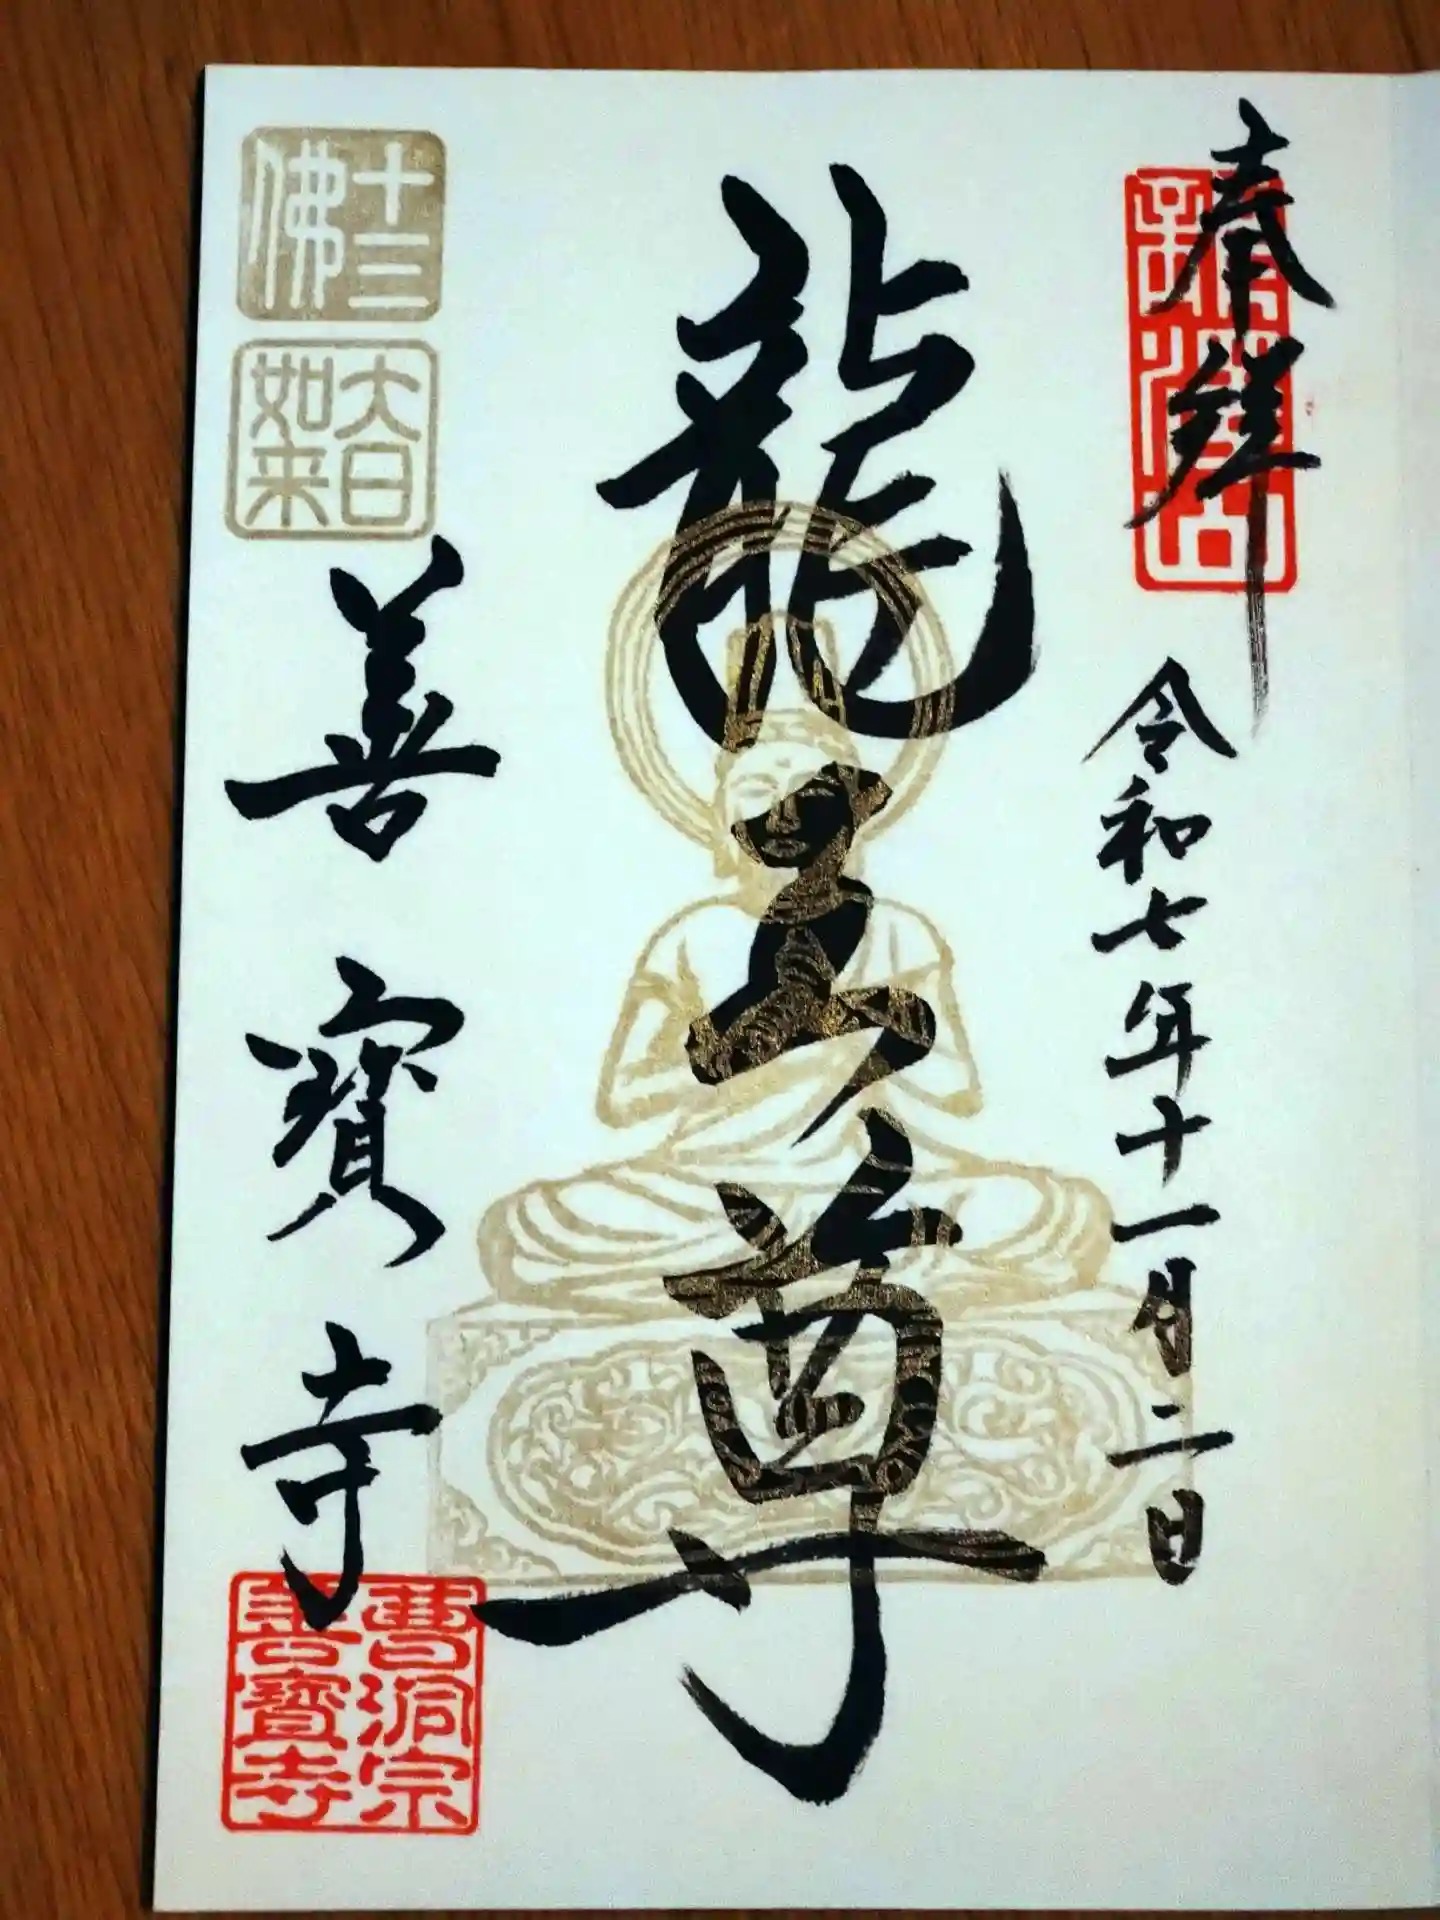 奉拝
龍澤山
令和七年十一月二日
龍王尊
十三
佛
大日
如来
善寳寺
曹洞宗
善寶寺